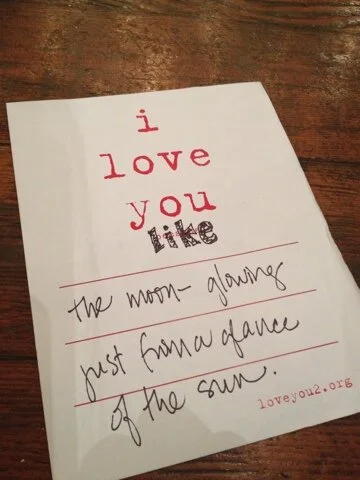 i
love
you
like
the moon - glowing
just from a glance
of the sun.
loveyou2.org